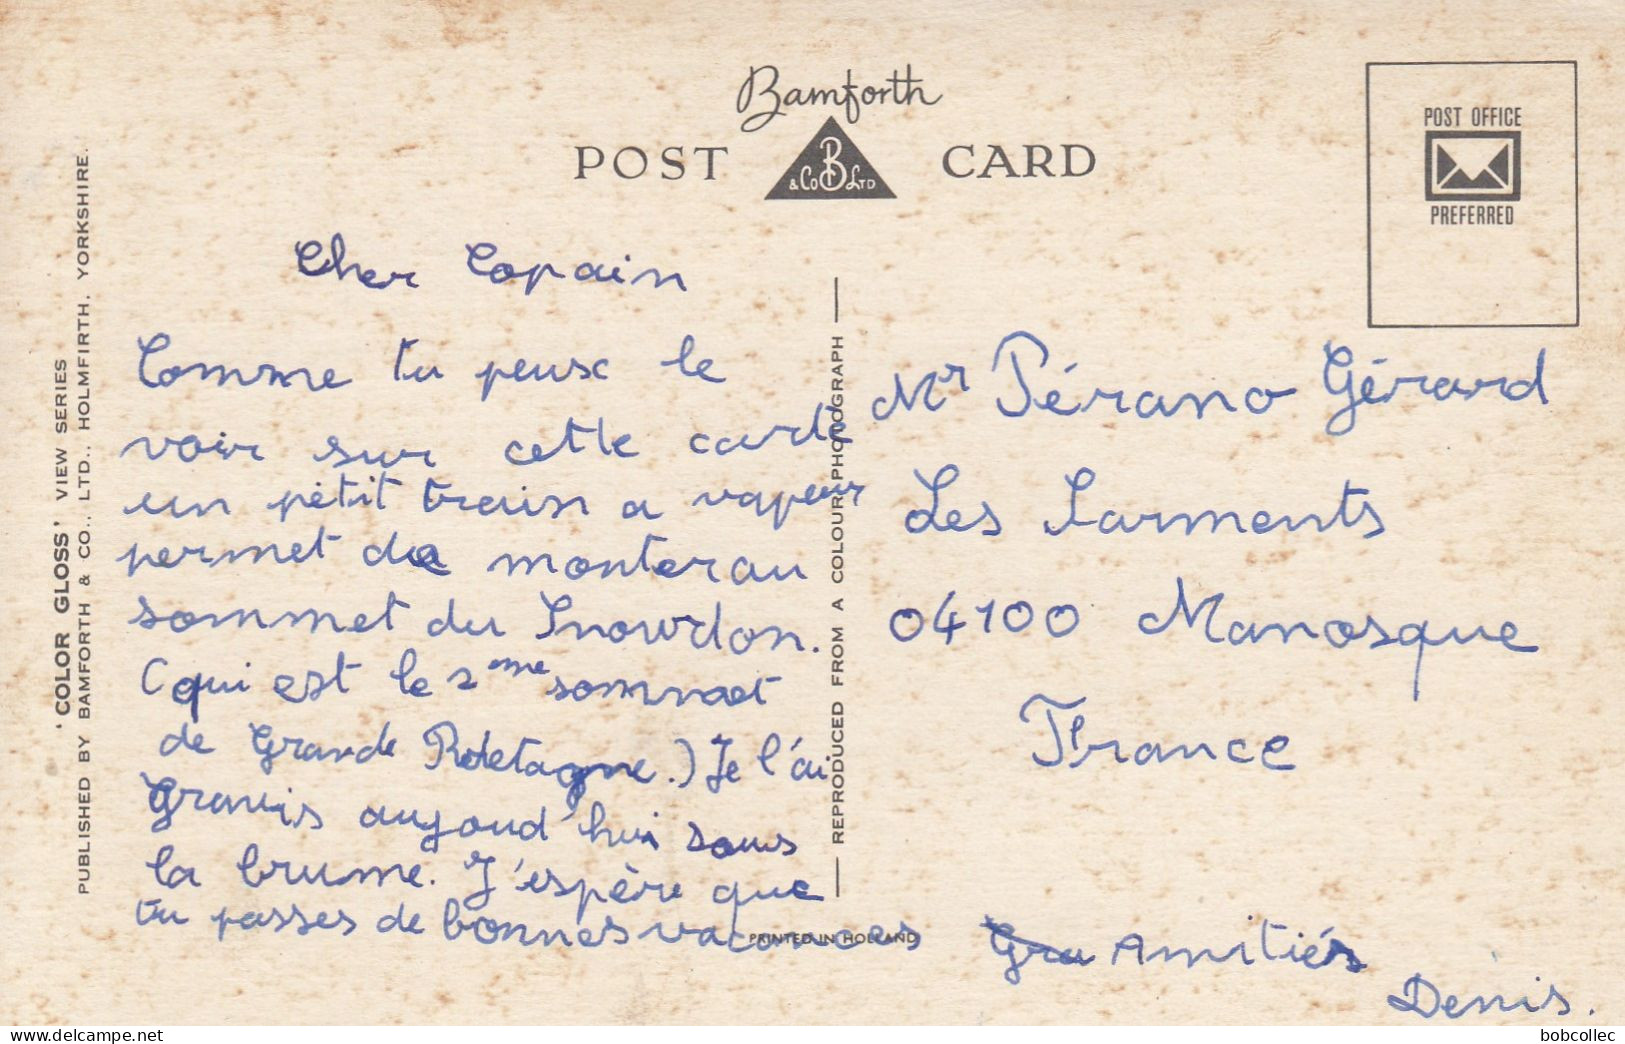 Bamforth
POST CARD
B
& Co LTD
POST OFFICE
PREFERRED
'COLOR GLOSS' VIEW SERIES
PUBLISHED BY BAMFORTH & CO., LTD., HOLMFIRTH, YORKSHIRE.
Cher Copain
Comme tu peux le
voir sur cette carte
un pètit train a vapeur
permet de monter au
sommet du Snowdon.
(qui est le 2eme sommet
de Grande Bretagne.) Je l'ai
gravis aujourd'hui sous
la brume. J'espère que
tu passes de bonnes vacances
REPRODUCED FROM A COLOUR PHOTOGRAPH
PRINTED IN HOLLAND
Mr Pérano Gérard
Les Sarments
04100 Manosque
France
Gra Amitiés
Denis.
bobcollec